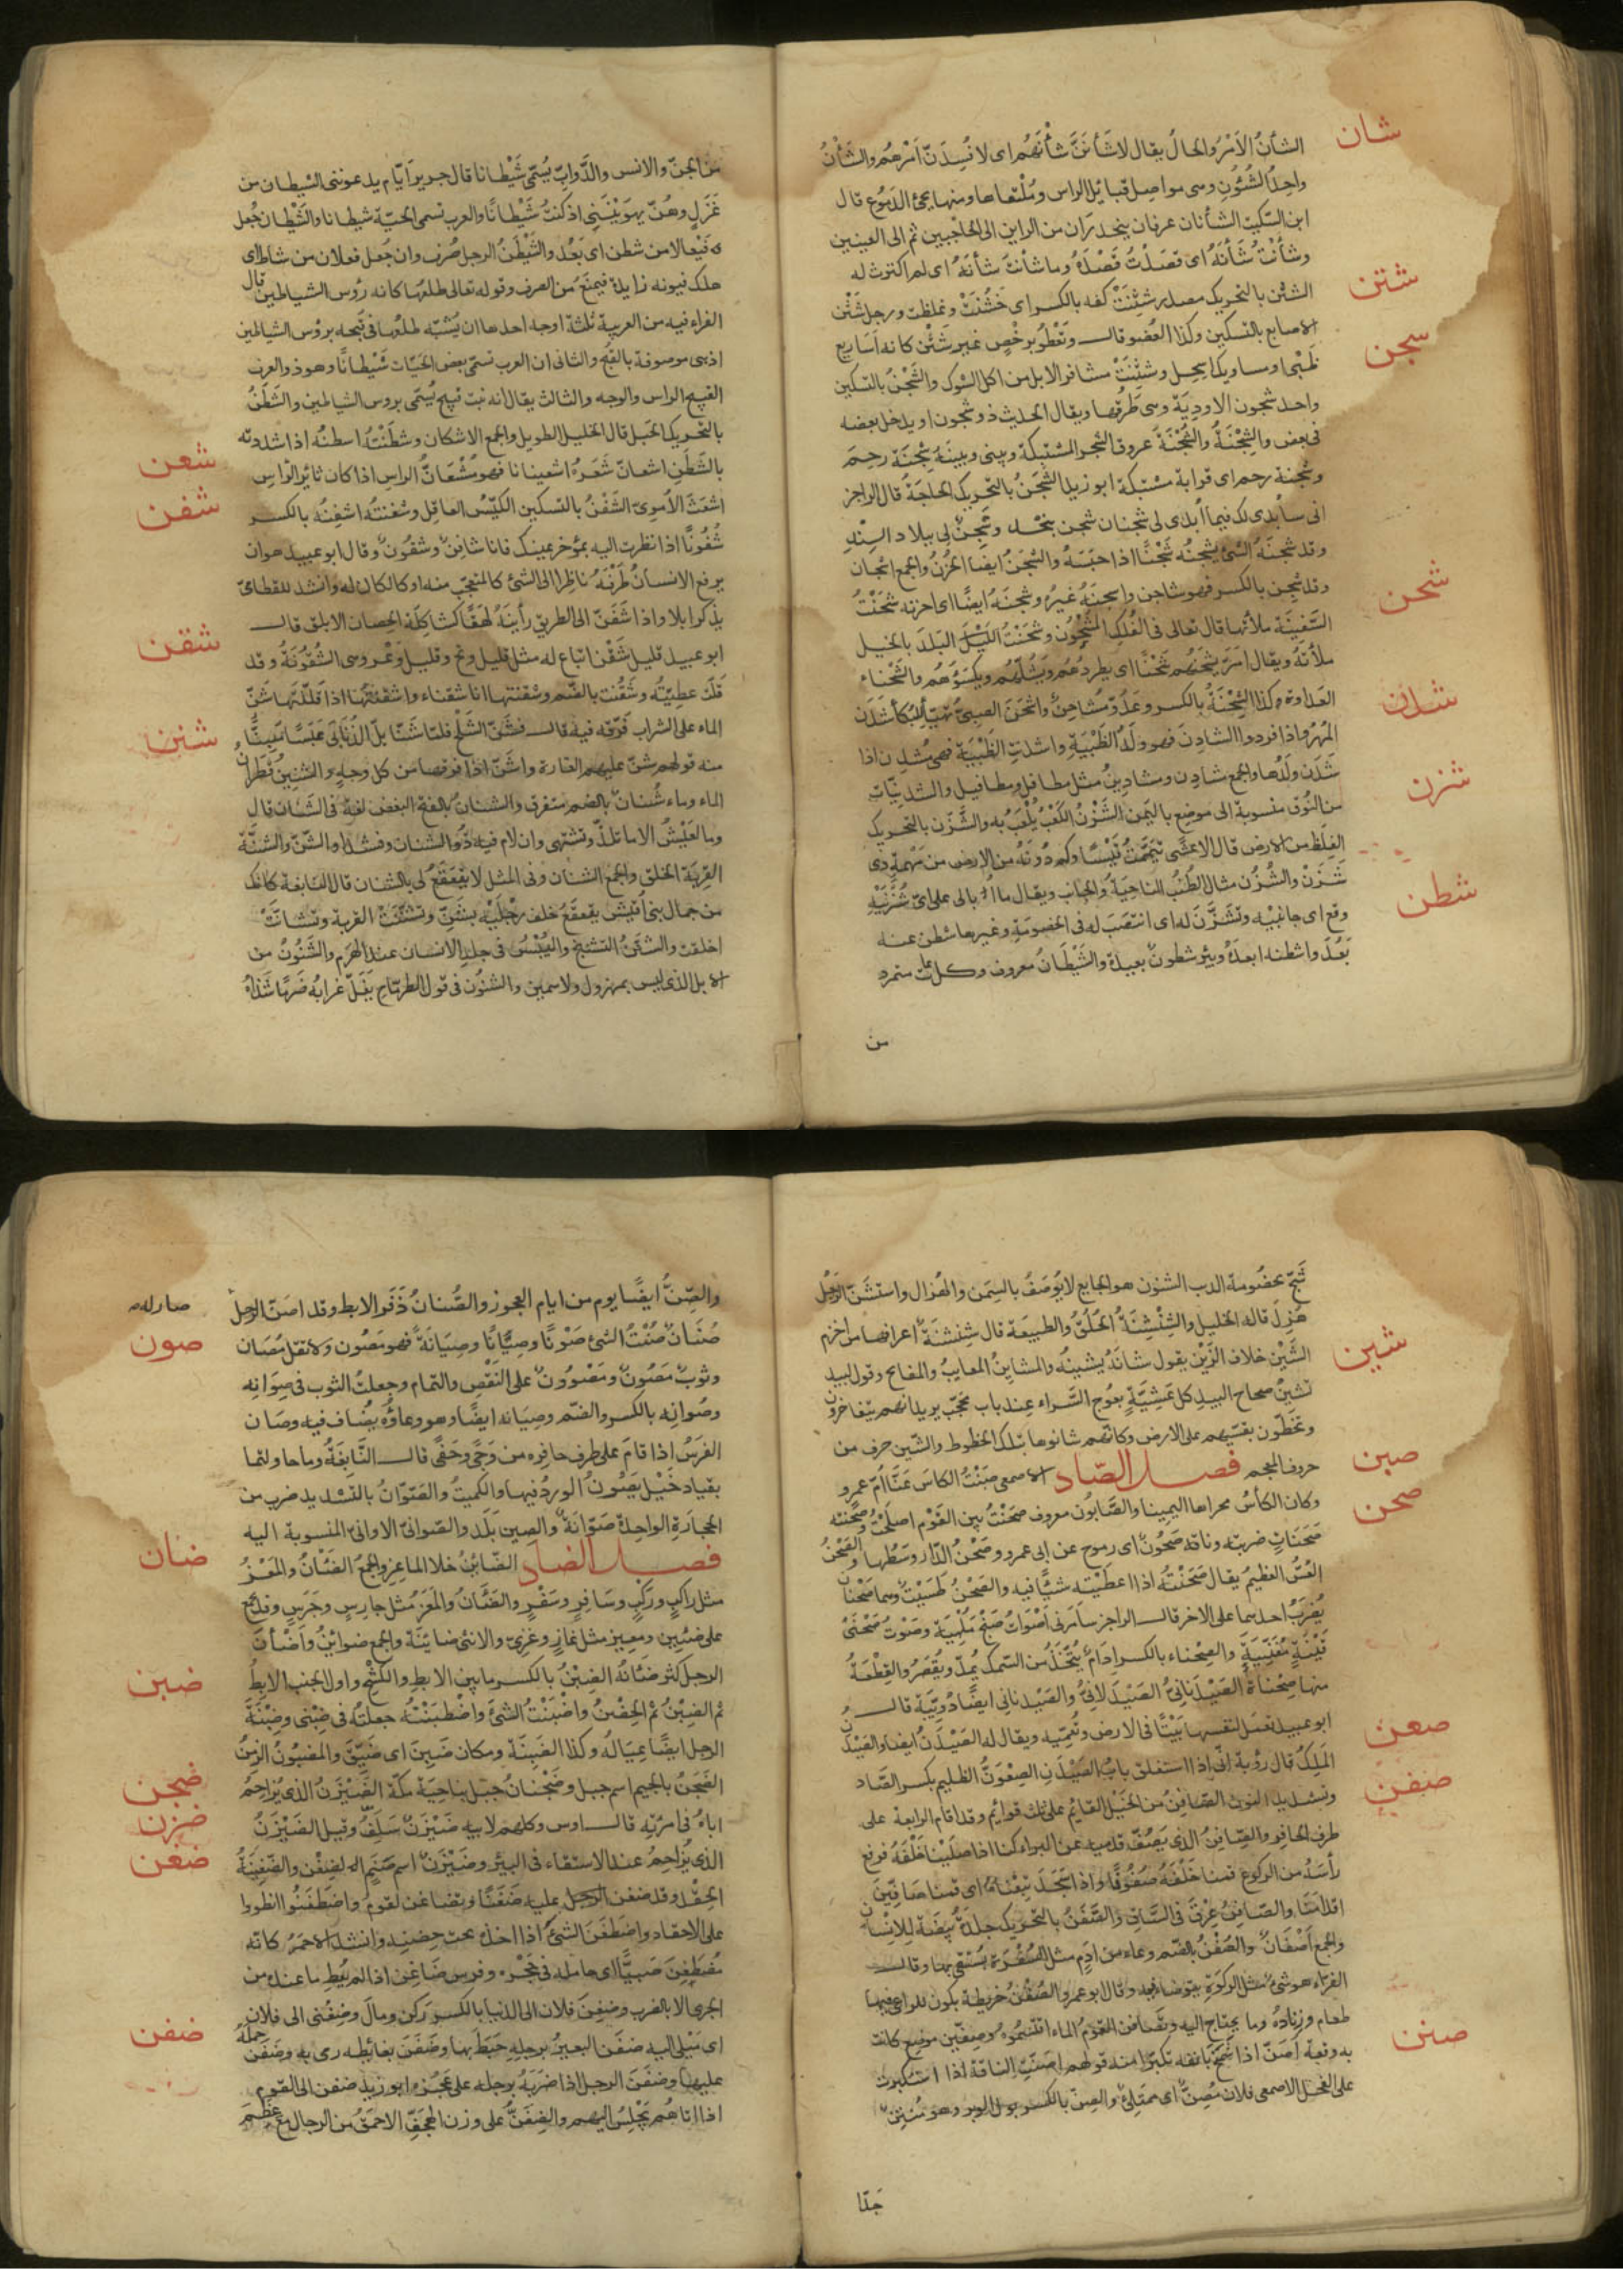 شان
الشأنُ الاَمْرُ والحالُ يقال لاشَأنَنَّ شأْنَهُم اى لاُفسِدَنّ اَمْرَهُم والشَأنُ
واحِدُ الشُئُونِ وهى مواصِل قبائِل الراس ومُلْتقاها ومنها يجئ الدُموع قال
ابن السّكيت الشأنان عرقان ينحدران من الراس الى الحاجبين ثم الى العينين
وشأنْتُ شَأنَهُ اى قصَدْتُ قَصْدَهُ وما شأنتُ شأنَهُ اى لم اكترث له
شثن
الشثن بالتحريك مصدر شثِنَتْ كفه بالكسر اى خَشُنَتْ وغلظت ورجل شَثْن
الاصابع بالتسكين وكذا العُضو قال وتَعْطُو برَخْصٍ غيرِ شَثْن كانه اَسَارِيع
شجن
ظَبْىٍ او مساويك اِسحِل وشثِنَتْ مشافر الابل من اكل الشوك والشَجْنُ بالتسكين
واحد شجون الاودِيَة وهى طُرقها ويقال الحديث ذو شجون اى يدخل بعضه
فى بعض والشِجْنَةُ والشُجْنَةُ عروق الشجر المشتبكة وبينى وبينَهُ شِجْنَة رحِم
وشجنة رحم اى قرابة مشتبكة ابو زيد الشَجَنُ بالتحريك الحاجَةُ قال الراجز
انى سأُبْدى لك فيما اُبدى لى شجنان شجن بنجد وشَجنٌ لى ببلاد السِنْدِ
وقد شجنَتهُ الشئ يشجنُه شَجْنًا اذا حبَسَهُ والشجَنُ ايضا الحُزْنُ والجمع اشجان
شحن
وقد شجِن بالكسر فهو شاجن واشجنَهُ غيرُهُ وشجنَهُ ايضًا اى احزنه شحَنْتُ
السَّفِينَةَ ملأتُها قال تعالى فى الفُلكِ المَشْحُون وشَحَنْتُ البَلَدَ بالخيل
ملأتَهُ ويقال مَرَّ يشحَنُهم شَحْنًا اى يطردُهُم ويَشُلُّهُم ويَكْسَؤُهُم والشحْنَاء
شدن
العداوة وكذا الشِحْنَةُ بالكسر وعَدُوّ مُشَاحِنٌ واشحَنَ الصبىّ تهيّأ للبُكأ شَدَن
المُهْرُ واذا افردوا الشادِن فهو ولَدُ الظَبْيَةِ واشدنتِ الظَبْيَة فهى مُشدِن اذا
شَدَن ولَدُها والجمع شادِن ومشادِينُ مثل مطافِل ومطافيل والشدنِيّات
شزن
من النُوق منسوبة الى موضِعٍ باليَمن الشَزْنُ الكَعْبُ يُلْعَبُ به والشَزَن بالتحريك
الغِلَظ من الارض قال الاعشى تيَمَّمْتُ قَيْسًا وكم دُونَهُ من الارض من مَهْمهٍ ذِى
شَزَنْ والشُزُن مثال الطُنُب الناحِيَةُ والجانِب ويقال ما اُبالى على اىّ شُزُنَيْهِ
شطن
وقع اى جانبَيْه وتشَزَّن له اى انتصَبَ له فى الخصُومَة وغيرها شطن عنه
بَعُدَ واشطنه ابعدَهُ وبئر شطونٌ بعيدة والشَيْطَان معروف وكل عاتٍ متمرد
من
من الجنّ والانس والدَّوابِّ يُسَمّى شَيْطانا قال جرير اَيّام يدعوننى الشيطان من
غَزَلٍ وهُنّ يهوَيْنَنِى اذ كنتُ شَيْطانًا والعرب تسمى الحيّة شيطانا والشَيْطان جُعِل
فَيْعالا من شطن اى بَعُد والشَيْطَنُ الرجل صُرِف وان جُعِل فعلان من شاط اى
هلك فنونه زايدة فيمتَنِعُ من الصرف وقوله تعالى طلعُها كانه رُؤس الشياطين قال
الفراء فيه من العربية ثلثة اوجه احدها ان يُشبّه طلعُها فى قبحه برؤس الشياطين
اذ هى موصوفة بالقُبح والثانى ان العرب تسمّى بعض الحيّات شَيْطانًا وهو ذو العرف
القبيح الراس والوجه والثالث يقال انه نبت قبيح يُسَمّى برُوس الشياطين والشَطَنُ
بالتحريك الحَبل قال الخليل الطويل والجمع الاشطان وشطَنْتُهُ اشطنُه اذا شددته
شعن
بالشَطَنِ اشعَانّ شَعَرُهُ اشعينانا فهو مُشْعَانّ الراس اذا كان ثائِر الرّاسِ
شفن
اشعَث الاُموىّ الشَفْنُ بالتسكين الكَيّس العاقل وشفنتُه اشفِنُه بالكسر
شُفُونًا اذا نظرت اليه بمؤخر عينك فانا شافِنٌ وشفُونٌ وقال ابو عبيد هو ان
يرفع الانسانُ طَرْفَهُ ناظِرًا الى الشئ كالمتعجّب منه او كالكاره له وانشد للقطامىّ
يذكر ابلا واذا شَفَنّ الى الطريق رأينَهُ لهَقًا كشاكِلَة الحصان الابلق قال
شقن
ابو عبيد قليل شَقْن اتباع له مثل قليل وتح وقليل وغر وهى الشُقُونَةُ وقد
قلّت عطيّتُه وشقُنت بالضم وشقنتها انا شقناء واشقنتُها اذا قلّلتَها شَنّ
شنن
الماء على الشراب فَرّقه فيه قال فشَنّ
منه قولهم شنّ عليهم الغارة واشنّ اذا فرقها من كل وجهٍ والشنينُ قَطَران
الماء وماء شُنان بالضم متفرق والشنان بالفتح البغض لغة فى الشَنَان قال
وما العَيْشُ الا ما تلذّ وتشتهى وان لام فيه ذُو الشنان وفنّدا والشَنّ والشَنّة
القِربَة الخلق والجمع الشنان وفى المثل لا يُقَعْقَعُ لى بالشنان قال النابغة كانك
من جمال بنى اُقَيْش يقعقَعُ خلف رِجْلَيْه بشَنِّ وتشنّنت القِربة وتشانّتْ
اخلقت والتشنّنُ التشنّج واليُبْسُ فى جلد الانسان عند الهَرَم والشَنُونُ من
الابل الذى ليس بمهزول ولا سمين والشنون فى قول الطرمّاح يَظَلّ غرابُهُ ضَرِمًا شَذَاهُ
شَجٍّ بخصُومة الذب الشنون هو الجايع لا يُوصَفُ بالسِمَن والهُزال واستشَنّ الرَجُلُ
هَزِلَ قاله الخليل والشِنْشِنَةُ الخُلُقُ والطبيعة قال شِنشنَة اعرفها من اخزم
شين
الشَيْن خلاف الزَيْن يقول شانَهُ يشينُه والمشاينُ المعايبُ والمقابح وقول لبيد
نشِينُ صحاح البيد كل عشيّةٍ بعُوج السَّراء عند باب مُحجّب يريد انهم يتفاخرون
ويخطّون بقسيّهم على الارض وكانّهم شانوها بتلك الخطوط والشين حرف من
صبن
حروف المعجم فصل الصّاد الاصمعى صبَنْتُ الكاسَ عَنّا اُمّ عمرو
صحن
وكان الكأسُ مجراها اليمينا والصَّابُون معروف صحَنْتُ بين القَوْمِ اصلحْتُ وصحَنته
صحَنَاتٍ ضربته وناقة صَحُونٌ اى رموح عن ابى عمرو وصَحْنُ الدّار وسَطُها والصَحْنُ
العُسّ العظيمُ يقال صَحَنْتُهُ اذا اعطَيْتَه شيئًا فيه والصَحْنُ طُسَيْت وهما صَحْنان
يُضرَبُ احدهما على الاخر قال الراجز سامَرنى اَصْوَاتُ صَنْجٍ مُلْهِيَة وصَوْتُ صَحْنَىْ
قَيْنَةٍ مُغَنِّيَةٍ والصِحْناء بالكسر اِدَامٌ يُتّخَذُ من السّمك يُمدّ ويُقصَرُ والقِطْعَةُ
منها صِحْناة الصَيْدَنانِىُّ الصَيْدَلانِىُّ والصَيْدَنانى ايضًا دُوَيبّة قال
ابو عبيد تعمَل لنفسها بَيْتًا فى الارض وتُعمّيه ويقال له الصَيْدَنُ ايضا والصَيْدَنُ
صعن
المَلِكُ قال رؤبة انّى اذا استغلق بابُ الصَيْدَنِ الصِعْوَنُّ الظليم بكسر الصّاد
صفن
وتشديد النون الصّافِنُ من الخَيْل القايم على ثلث قوائِم وقد اقام الرابعة على
طرف الحافر والصَافِنُ الذى يَصُفّ قدميه عن البراء كنا اذا صلّينا خلْفَهُ فرفع
رأسَهُ من الركوع قمنا خَلْفَهُ صُفُونًا واذا سَجَدَ تبِعْناهُ اى قمنا صَافِنِينَ
اقدامَنَا والصَافِنُ عِرْق فى السَّاق والصَفَنُ بالتحريك جلدَةُ بَيْضَة للاِنْسان
والجمع اَصْفَانٌ والصُفْن بالضم وعاء من ادمٍ مثل السُفْرَة يُسْتَقى بها وقال
الفرّاء هو شئ مثل الركوَةِ يتوضاء فيه وقال ابو عمرو الصُفْنُ خريطة يكون للراعى فيها
طعام وزنادُهُ وما يحتاج اليه وتصَافن القَوْمُ الماء اقتسمُوهُ وصِفّين موضع كانت
صنن
به وقعة اَصَنّ اذا شَمَخَ بانفه تكبّرًا منه قولهم اصَنّتِ الناقة اذا استكبرت
على الفحل الاصمعى فلان مُصِنّ اى ممتلئ والصِنّ بالكسر بول الوبر وهو مُنتِنٌ
جدّا
والصِّنُّ ايضًا يوم من ايام العجوز والصُنانُ ذَفَر الابط وقد اصَنّ الرجل
صار له
صون
صُنَانٌ صُنْتُ الشئ صَوْنًا وصِيَانًا وصِيَانَةً فهو مَصُون ولا تقل مُصَان
وثوبٌ مَصُونٌ ومَصْوُونٌ على النَقْصِ والتمام وجعلتُ الثوب فى صِوَانِه
وصُوانِه بالكسر والضم وصِيَانه ايضًا وهو وعاؤُه يُضاف فيه وصَان
الفرَسُ اذا قامَ على طرف حافِره من وَجًى وحَفًى قال النَّابِغَةُ وما حاولتما
بقيادِ خَيْلٍ يَصُونُ الوردُ فيها والكميتُ والصَوّانُ بالتشديد ضرب من
الحجارَةِ الواحدة صَوّانَةٌ والصين بلَد والصوانىّ الاوانى المنسوبة اليه
ضان
فصل الضاد الضّائِنُ خلاف الماعِز والجمعُ الضَأنُ والمَعْزُ
مثل راكبٍ ورَكْبٍ وسَافِرٍ وسَفْرٍ والضَأنُ والمَعَزُ مثل حارسٍ وحَرَسٍ وقد جمع
على ضئين ومعِيز مثل غازٍ وغزىّ والانثى ضائِنَة والجمع ضوائِنُ واَضْأنَ
ضبن
الرجل كثر ضئانُهُ الضِبْنُ بالكسر ما بين الابط والكَشْح واول الجنب الابطُ
ثم الضِبْنُ ثم الحِضْنُ واضْبَنْتُ الشئَ واضطبَنْتُه جعلتُهُ فى ضِبْنِى وضِبْنَةُ
الرجل ايضًا عِيَالُه وكذا الضَبِنَة ومكان ضَبِنٌ اى ضَيّق والمضبُونُ الزمِنُ
ضجن
الضَجَنُ بالجيم اسم جبل وضَجْنَانُ جبَل بناحِيَة مكّة الضَيْزَنُ الذى يُزاحِمُ
ضزن
اباهُ فى امرأتِه قال اوس وكلهم لابيه ضَيْزَنٌ سَلِفُ وقيل الضَيْزَنُ
ضغن
الذى يُزاحِمُ عند الاستقاء فى البئر وضَيْزَنٌ اسم صَنَمٍ الضِغْن والضَغِينَةُ
الحِقْد وقد ضغِن عليه ضَغَنًا وتضَاغن القومُ واضطَغَنُوا انطووا
على الاحقاد واضطَغَنَ الشئَ اذا اخذهُ تحت حِضنِهِ وانشد الاحمَرُ كانّه
مُضطَغِنٌ صَبِيًّا اى حامله فى حَجْرِهِ وفرس ضاغِن اذا لم يُعطِ ما عندهُ من
الجرى الا بالضرب وضغِنَ فلان الى الدنيا بالكسر رَكَن ومالَ وضِغْنى الى فلان
ضفن
اى مَيْلى اليه ضفَن البعيرُ برجلِهِ خبَطَ بها وضَفَنَ بغائِطه رمى به وضَفَن حملَهُ
عليها وضفَنَ الرجلَ اذا ضرَبَهُ برجله على عَجُزِهِ ابو زيد ضفن الى القوم
اذا اتاهُم يَجْلِسُ اليهم والضِفَنُّ على وزن الهِجَفِّ الاحمَقُ من الرجال مع عِظَمٍ